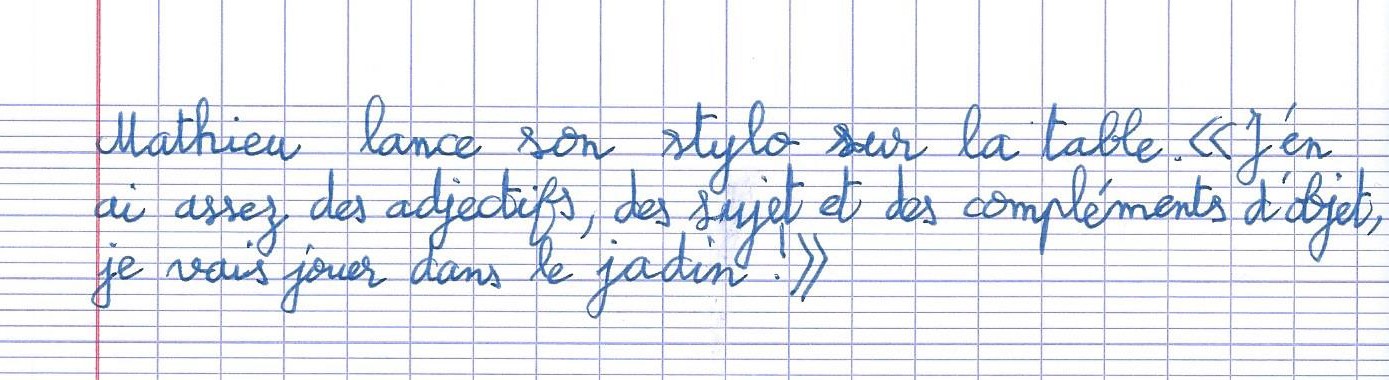 Mathieu lance son stylo sur la table. «J'én
ai assez des adjectifs, des sujet et des compléments d'objet,
je vais jouer dans le jadin !»